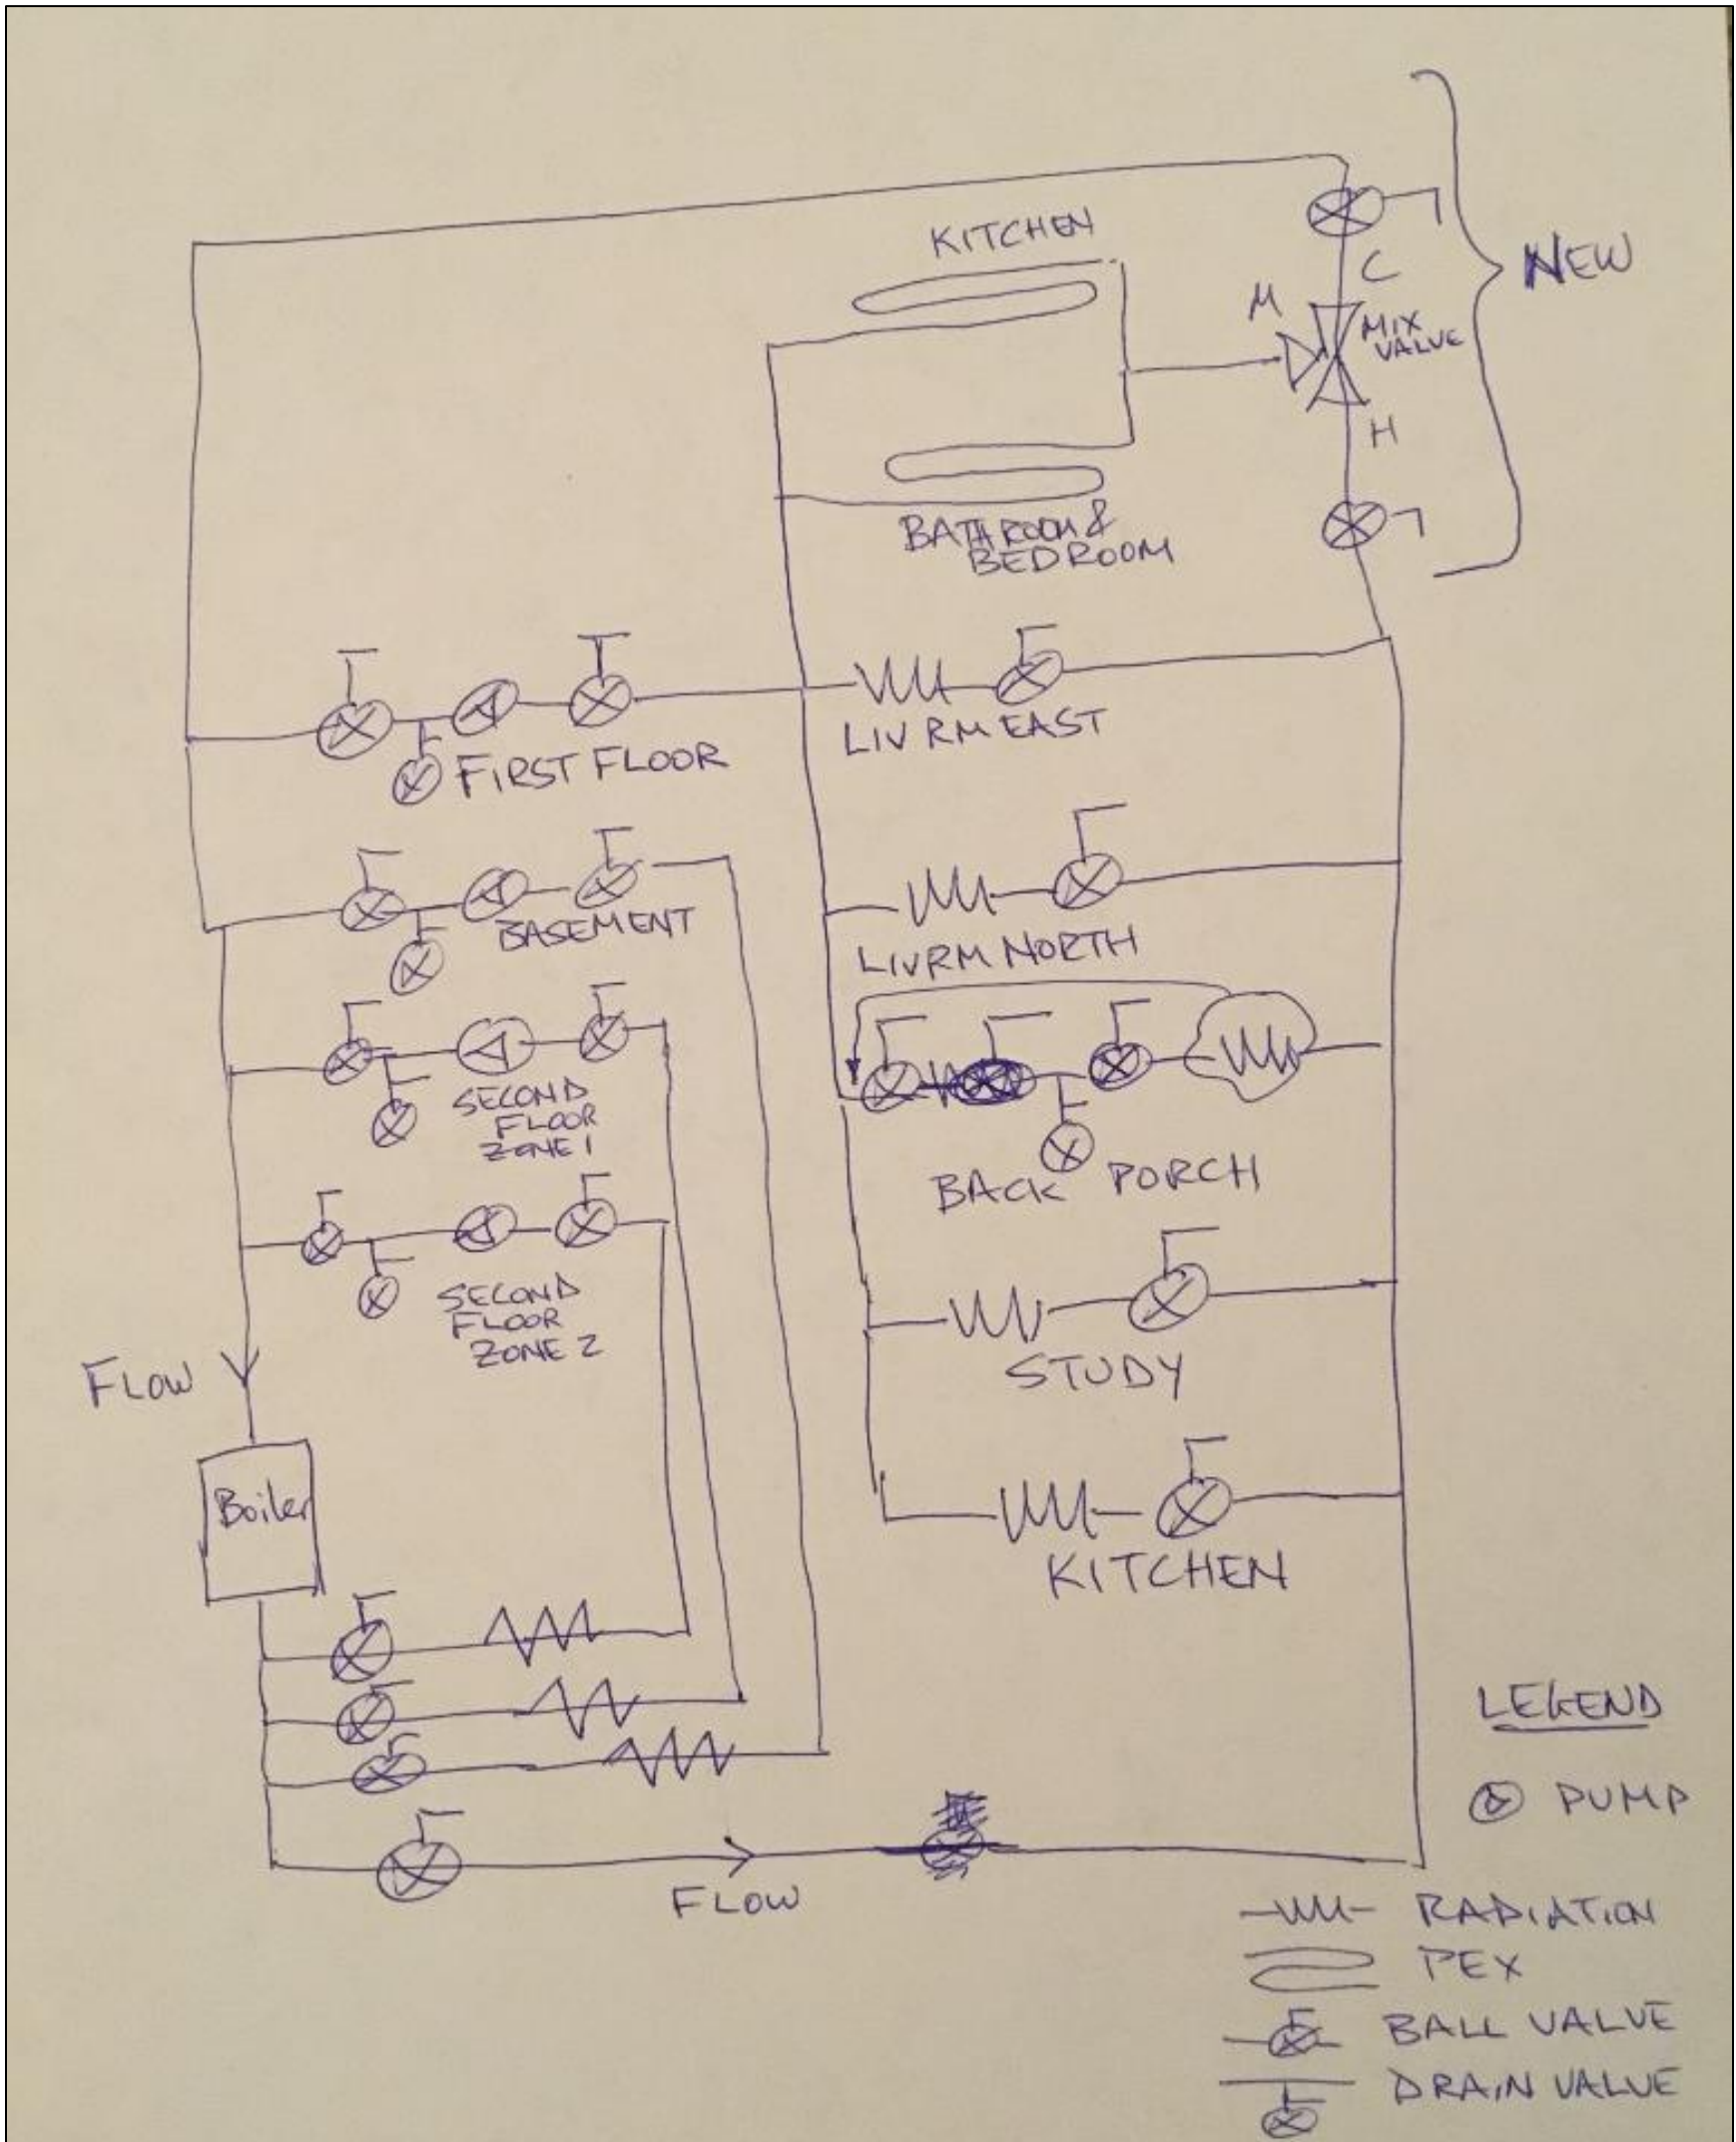 KITCHEN
NEW
C
M
MIX
VALVE
H
BATHROOM &
BEDROOM
FIRST FLOOR
LIV RM EAST
BASEMENT
LIV RM NORTH
SECOND
FLOOR
ZONE 1
BACK PORCH
SECOND
FLOOR
ZONE 2
FLOW
STUDY
Boiler
KITCHEN
FLOW
LEGEND
PUMP
RADIATION
PEX
BALL VALVE
DRAIN VALVE